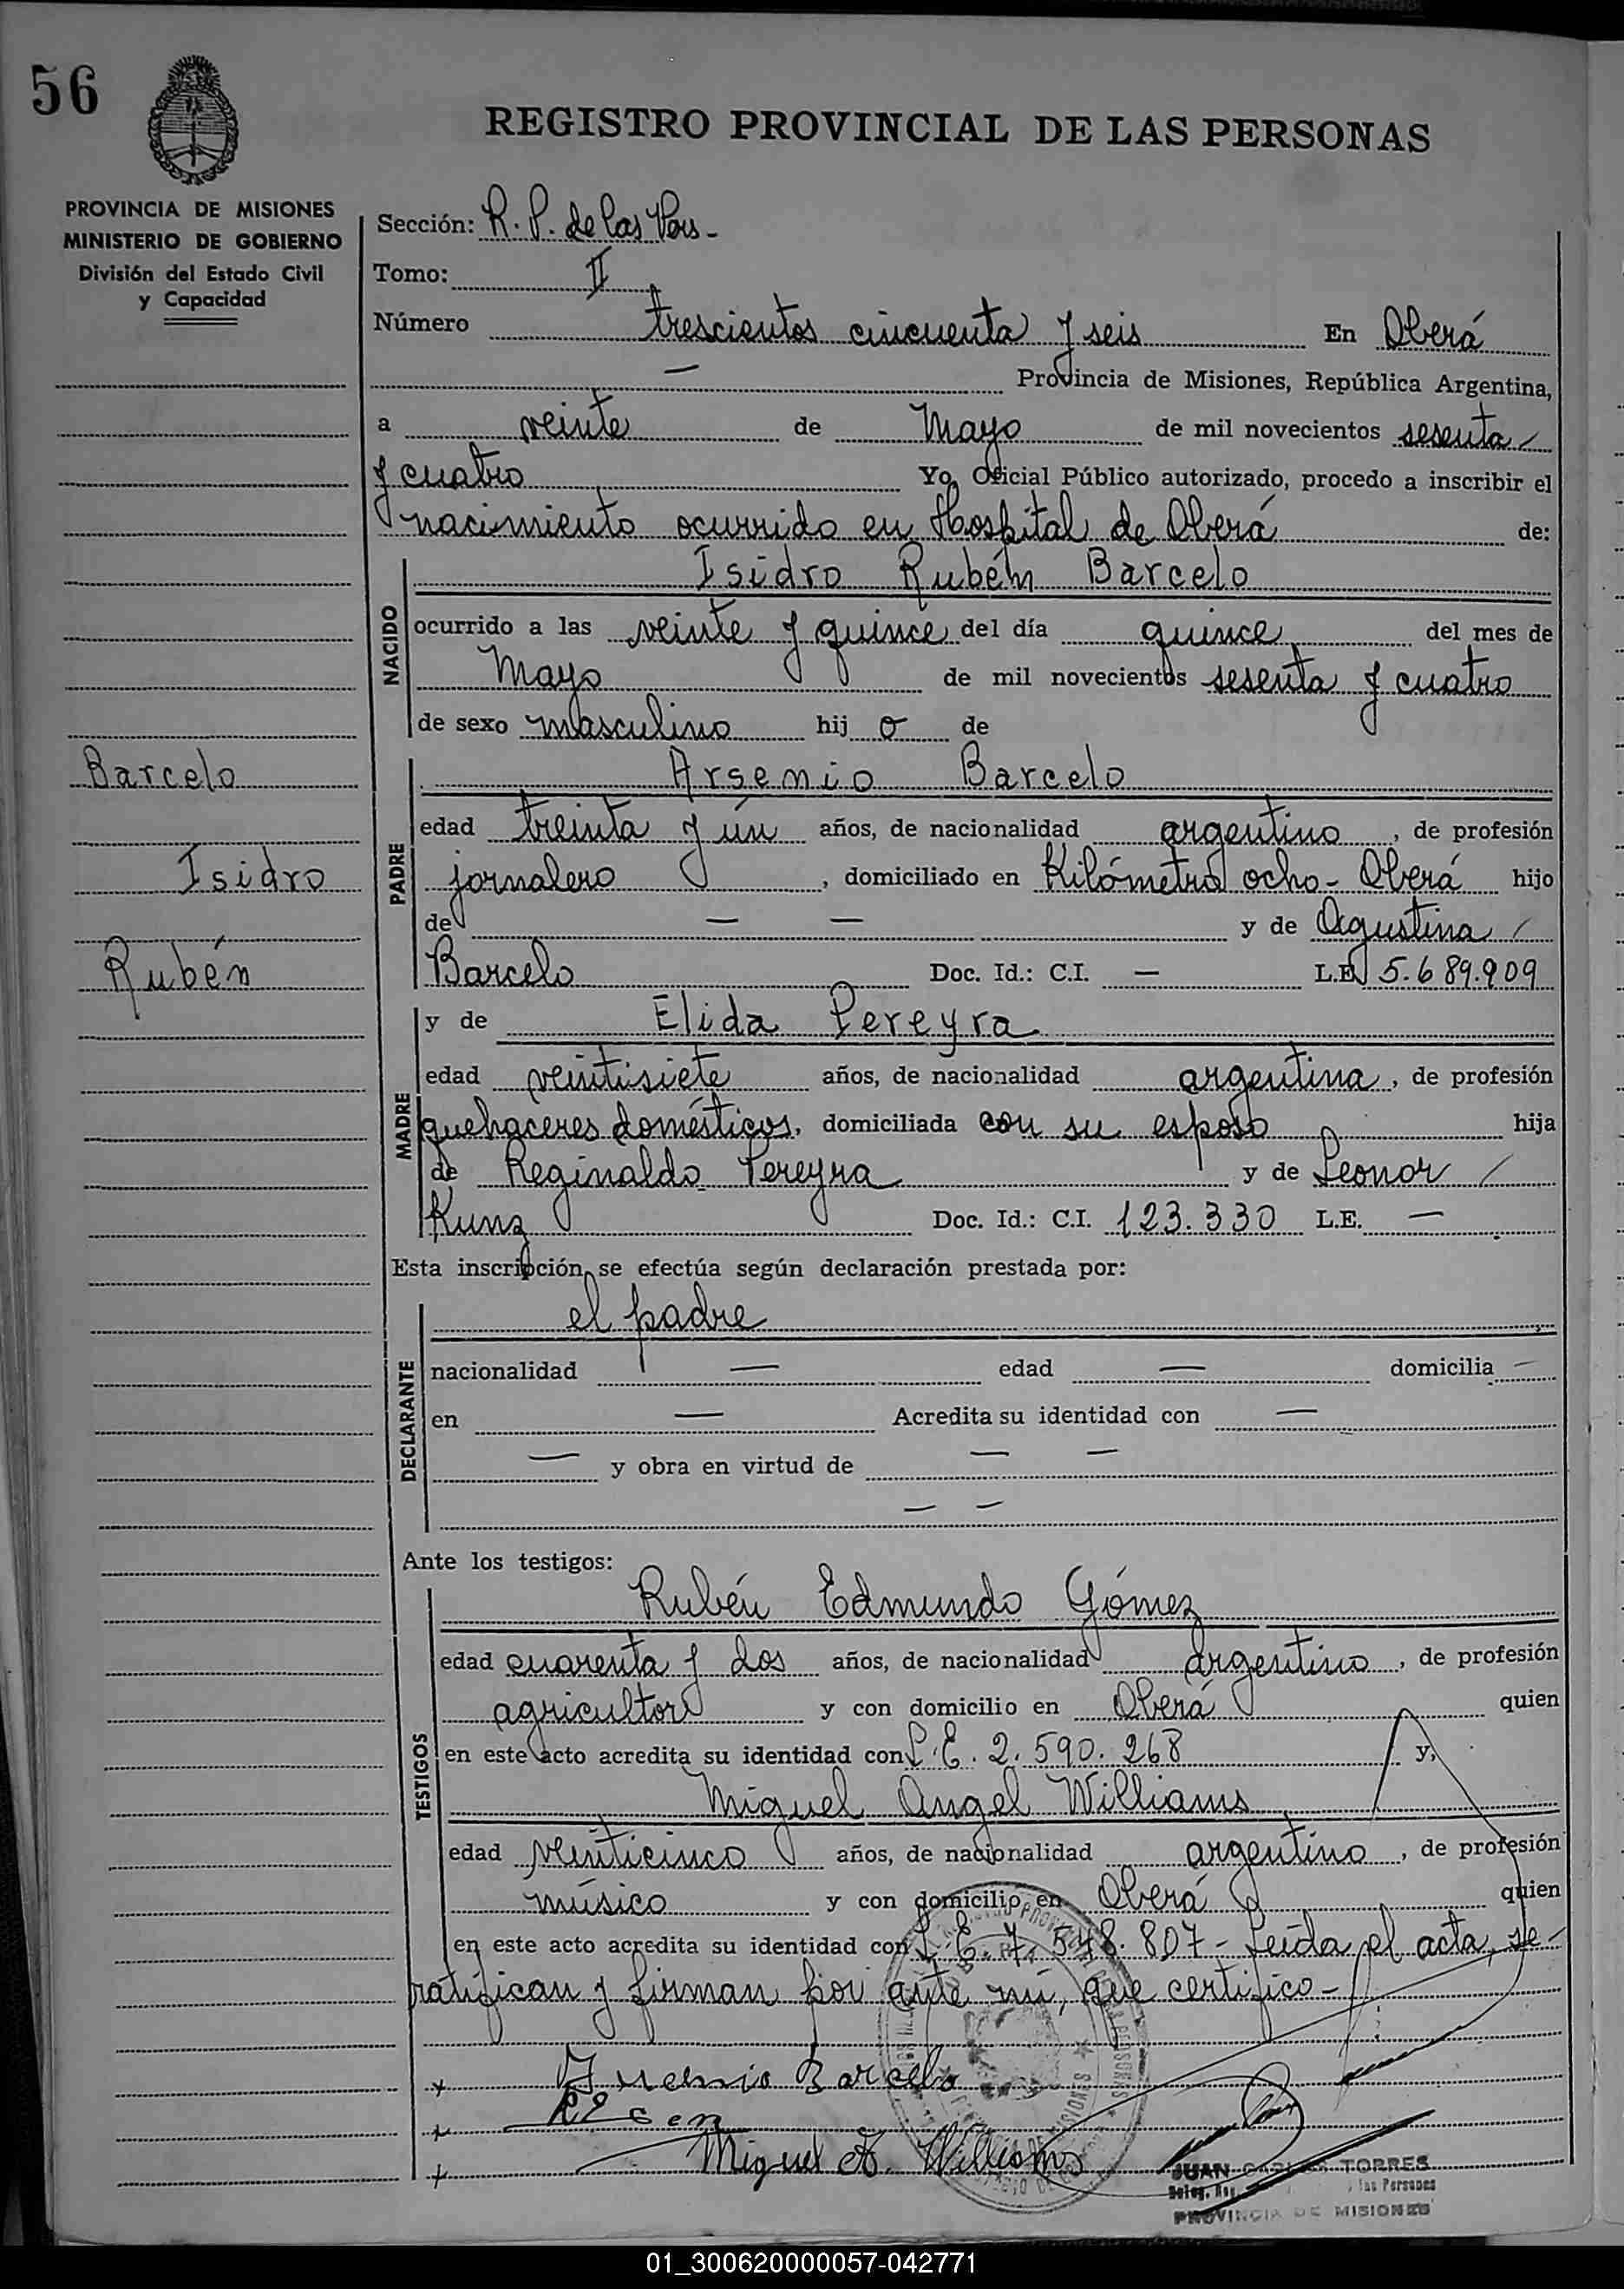 56
REGISTRO PROVINCIAL DE LAS PERSONAS
PROVINCIA DE MISIONES
MINISTERIO DE GOBIERNO
División del Estado Civil
y Capacidad
Sección: R. P. de las Pers-
Tomo: II
Número trescientos cincuenta y seis En Oberá
— Provincia de Misiones, República Argentina,
a veinte de Mayo de mil novecientos sesenta
y cuatro Yo, Oficial Público autorizado, procedo a inscribir el
nacimiento ocurrido en Hospital de Oberá de:
NACIDO
Isidro Rubén Barcelo
ocurrido a las veinte y quince del día quince del mes de
Mayo de mil novecientos sesenta y cuatro
de sexo masculino hij o de
Barcelo
Isidro
Rubén
PADRE
Arsenio Barcelo
edad treinta y ún años, de nacionalidad argentino, de profesión
jornalero, domiciliado en Kilómetro ocho- Oberá hijo
de — — y de Agustina
Barcelo Doc. Id.: C.I. — L.E. 5.689.909
MADRE
y de Elida Pereyra
edad veintisiete años, de nacionalidad argentina, de profesión
quehaceres domésticos, domiciliada con su esposo hija
de Reginaldo Pereyra y de Leonor
Kunz Doc. Id.: C.I. 123.330 L.E. —
Esta inscripción se efectúa según declaración prestada por:
DECLARANTE
el padre
nacionalidad — edad — domicilia —
en — Acredita su identidad con —
— y obra en virtud de — —
— —
Ante los testigos:
TESTIGOS
Rubén Edmundo Gómez
edad cuarenta y dos años, de nacionalidad argentino, de profesión
agricultor y con domicilio en Oberá quien
en este acto acredita su identidad con L.E. 2.590.268 y,
Miguel Angel Williams
edad veinticinco años, de nacionalidad argentino, de profesión
músico y con domicilio en Oberá quien
en este acto acredita su identidad con L.E. 7.548.807- Leída el acta, se
ratifican y firman por ante mí, que certifico-
x Arsenio Barcelo
x
x Miguel A. Williams
JUAN CARLOS TORRES
las Personas
PROVINCIA DE MISIONES
01_300620000057-042771